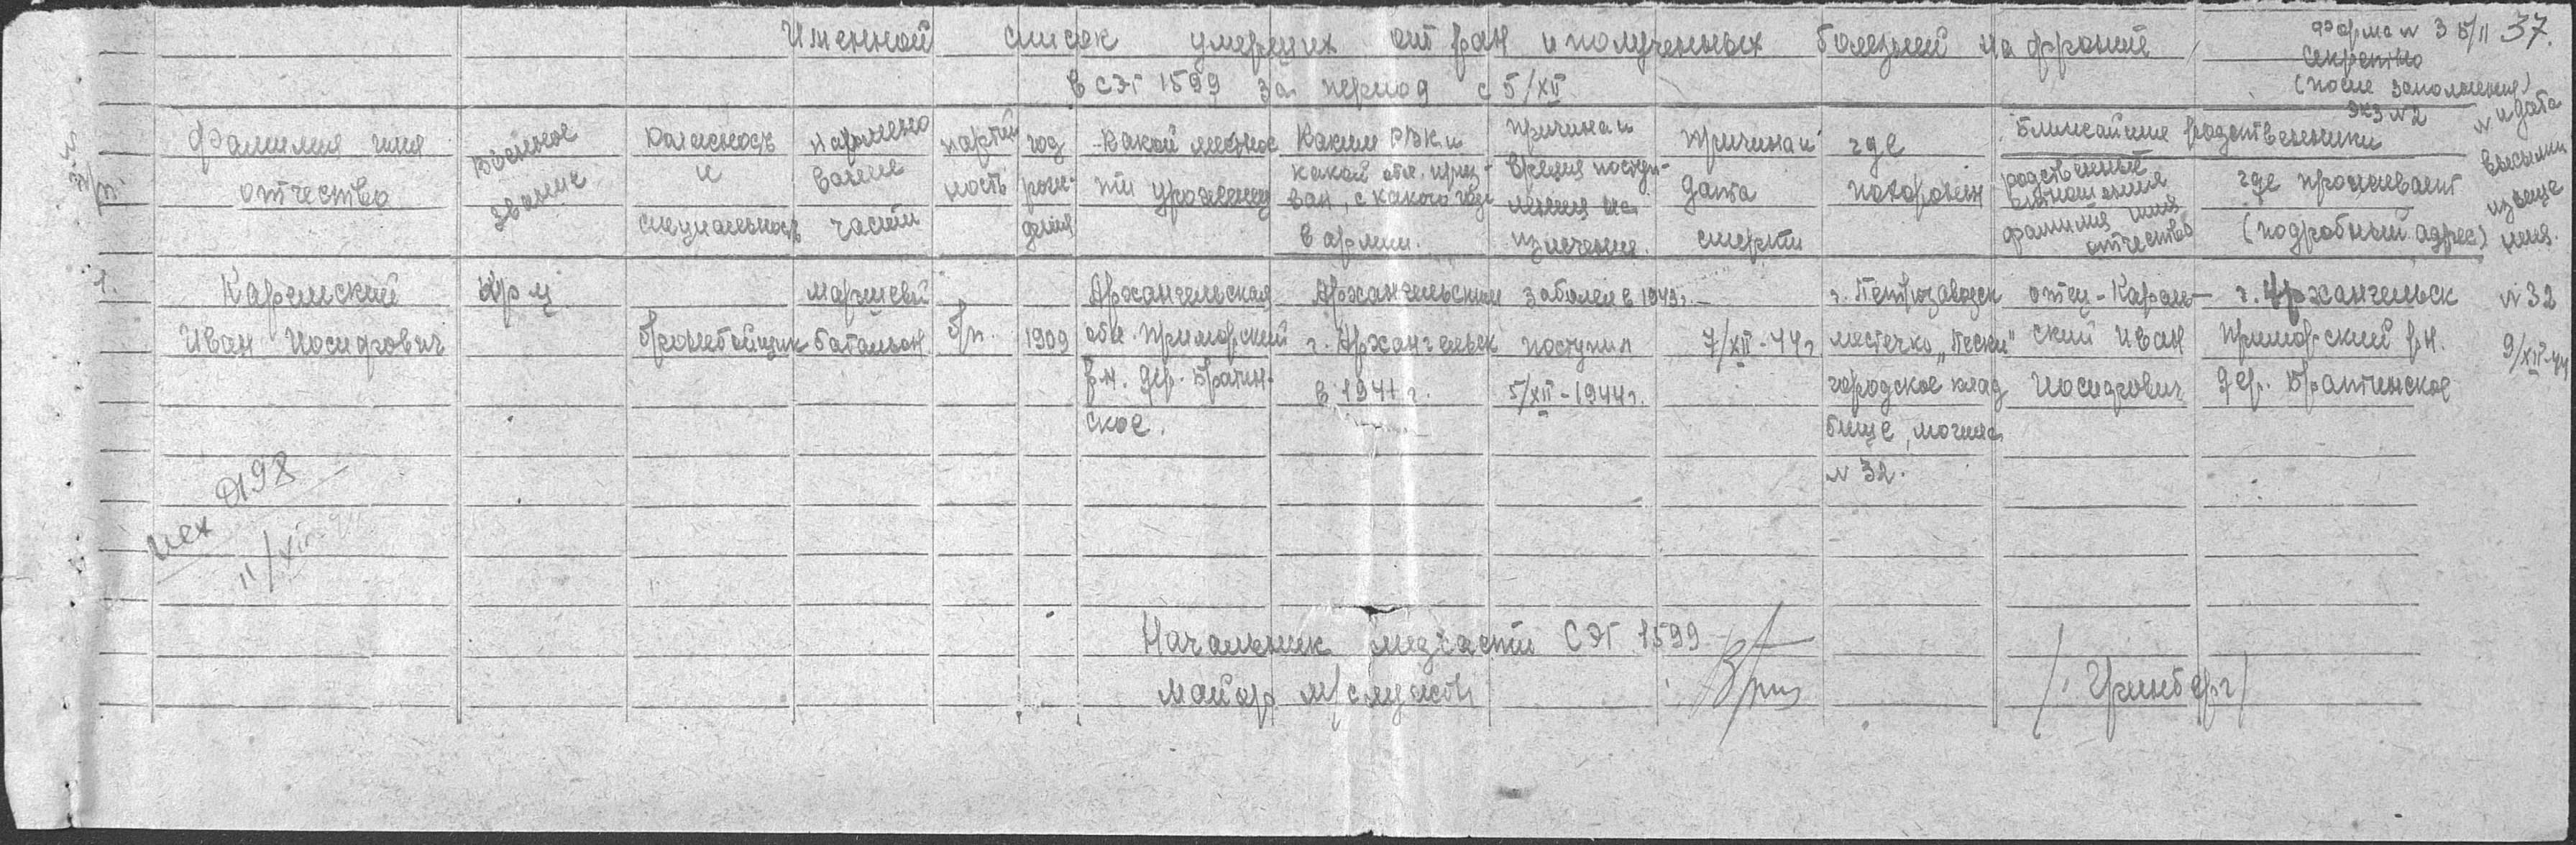 Форма № 3 б/II 37.
Именной список умерших от ран и полученных болезней на фронте
Секретно
(после заполнения)
в СЭГ 1599 за период с 5/XII
экз №2
№ п/п.
Фамилия имя
отчество
Военное
звание
должность
и
специальность
Наимено
вание
части
партий
ность
год
рож-
дения
Какой местнос
ти уроженец
Каким РВК и
какой обл. приз-
ван, с какого года
в армии.
Причина и
время поступ-
ления на
излечение.
Причина и
дата
смерти
где
похоронен
Ближайшие родственники
родственные
отношения
фамилия имя
отчество
где проживает
(подробный адрес)
№ и дата
высылки
извеще
ния.
1.
Карельский
Иван Иосифович
Кр-ц
бронебойщик
маршевый
батальон
б/п.
1909
Архангельская
обл. Приморский
р-н. дер. Братин-
ское.
Архангельским
г. Архангельск
в 1941 г.
заболел в 1943г.
поступил
5/XII-1944г.
7/XII-44г
г. Петрозаводск
местечко „Пески"
городское клад
бище, могила
№ 32.
отец - Карель-
ский Иван
Иосифович
г. Архангельск
Примор-ский р-н.
дер. Братинское
№ 32
9/XII-44
исх 0198
11/XII-
Начальник медчасти СЭГ 1599
майор м/службы
/Гринберг/